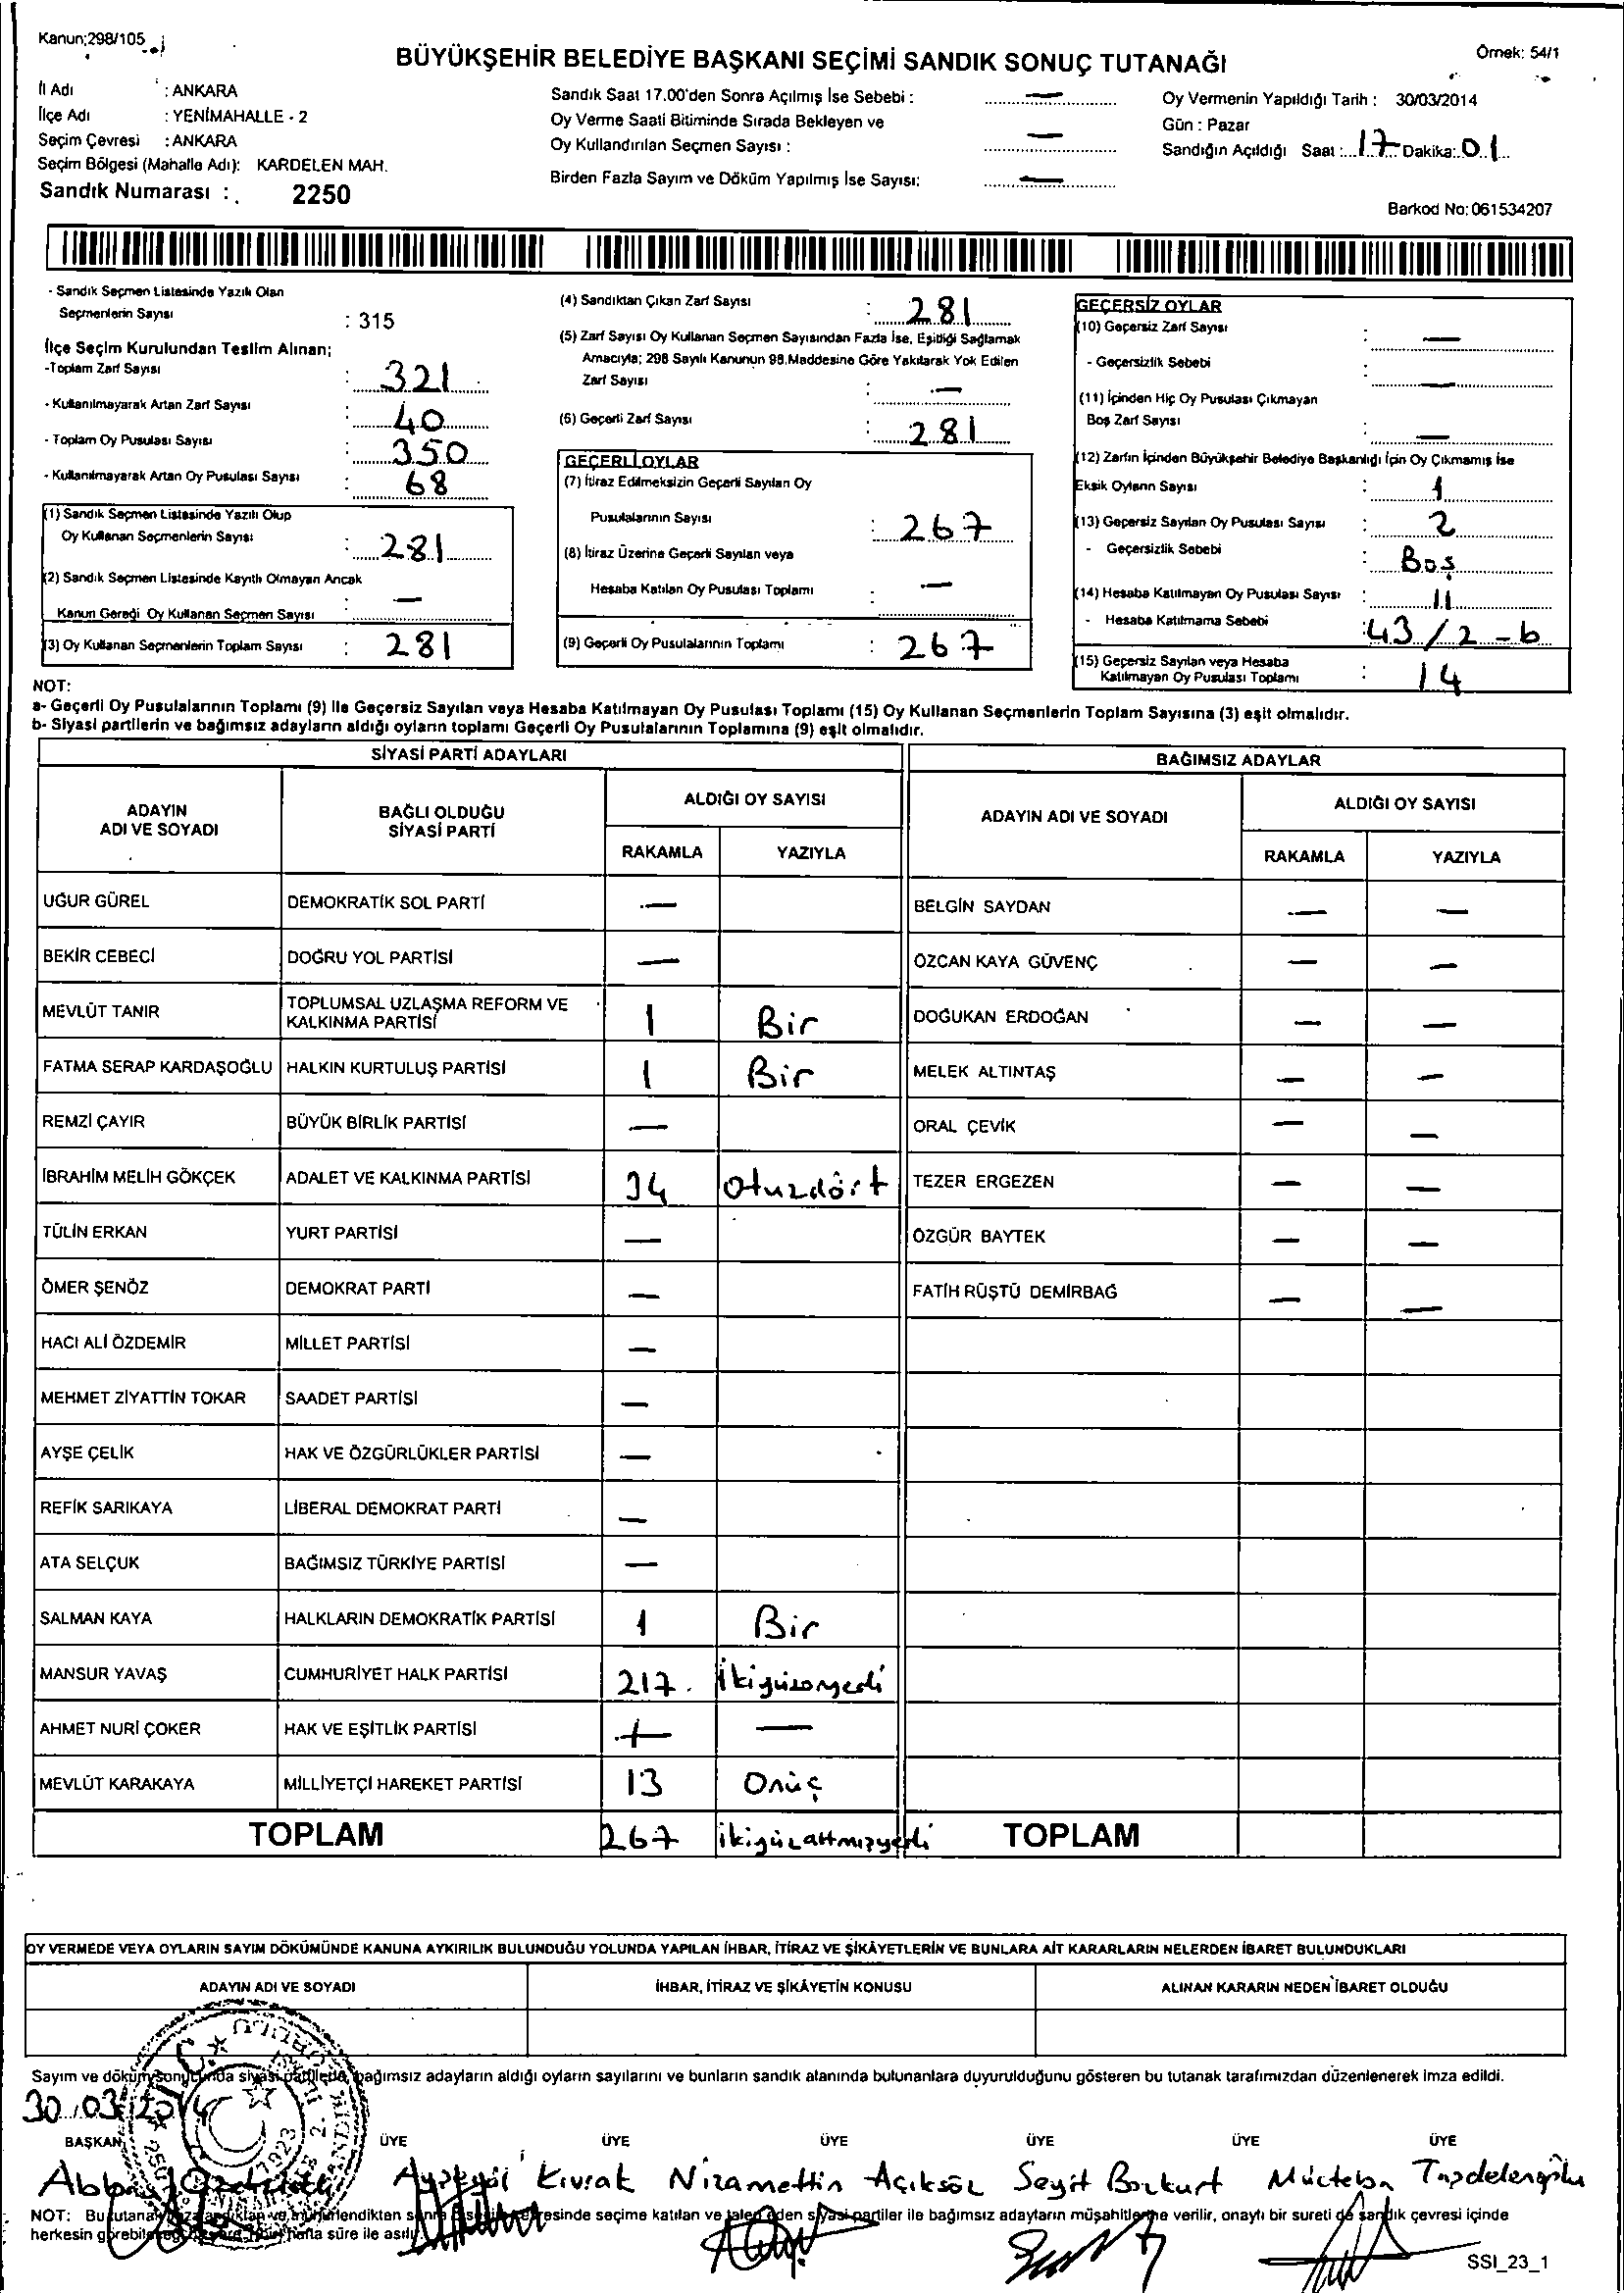 Kanun;298/105
BÜYÜKŞEHİR BELEDİYE BAŞKANI SEÇİMİ SANDIK SONUÇ TUTANAĞI
Örnek: 54/1
İl Adı : ANKARA
İlçe Adı : YENİMAHALLE - 2
Seçim Çevresi : ANKARA
Seçim Bölgesi (Mahalle Adı): KARDELEN MAH.
Sandık Numarası : 2250
Sandık Saat 17.00'den Sonra Açılmış İse Sebebi : —
Oy Verme Saati Bitiminde Sırada Bekleyen ve
Oy Kullandırılan Seçmen Sayısı : —
Birden Fazla Sayım ve Döküm Yapılmış İse Sayısı: —
Oy Vermenin Yapıldığı Tarih : 30/03/2014
Gün : Pazar
Sandığın Açıldığı Saat : 17 Dakika: 01
Barkod No: 061534207
- Sandık Seçmen Listesinde Yazılı Olan
Seçmenlerin Sayısı : 315
İlçe Seçim Kurulundan Teslim Alınan;
-Toplam Zarf Sayısı : 321
- Kullanılmayarak Artan Zarf Sayısı : 40
- Toplam Oy Pusulası Sayısı : 350
- Kullanılmayarak Artan Oy Pusulası Sayısı : 68
(1) Sandık Seçmen Listesinde Yazılı Olup
Oy Kullanan Seçmenlerin Sayısı : 281
(2) Sandık Seçmen Listesinde Kayıtlı Olmayan Ancak
Kanun Gereği Oy Kullanan Seçmen Sayısı : —
(3) Oy Kullanan Seçmenlerin Toplam Sayısı : 281
(4) Sandıktan Çıkan Zarf Sayısı : 281
(5) Zarf Sayısı Oy Kullanan Seçmen Sayısından Fazla İse, Eşitliği Sağlamak
Amacıyla; 298 Sayılı Kanunun 98.Maddesine Göre Yakılarak Yok Edilen
Zarf Sayısı : —
(6) Geçerli Zarf Sayısı : 281
GEÇERLİ OYLAR
(7) İtiraz Edilmeksizin Geçerli Sayılan Oy
Pusulalarının Sayısı : 267
(8) İtiraz Üzerine Geçerli Sayılan veya
Hesaba Katılan Oy Pusulası Toplamı : —
(9) Geçerli Oy Pusulalarının Toplamı : 267
GEÇERSİZ OYLAR
(10) Geçersiz Zarf Sayısı : —
- Geçersizlik Sebebi : —
(11) İçinden Hiç Oy Pusulası Çıkmayan
Boş Zarf Sayısı : —
(12) Zarfın İçinden Büyükşehir Belediye Başkanlığı İçin Oy Çıkmamış İse
Eksik Oyların Sayısı : 1
(13) Geçersiz Sayılan Oy Pusulası Sayısı : 2
- Geçersizlik Sebebi : Boş
(14) Hesaba Katılmayan Oy Pusulası Sayısı : 11
- Hesaba Katılmama Sebebi : 43/2-b
(15) Geçersiz Sayılan veya Hesaba
Katılmayan Oy Pusulası Toplamı : 14
NOT:
a- Geçerli Oy Pusulalarının Toplamı (9) İle Geçersiz Sayılan veya Hesaba Katılmayan Oy Pusulası Toplamı (15) Oy Kullanan Seçmenlerin Toplam Sayısına (3) eşit olmalıdır.
b- Siyasi partilerin ve bağımsız adayların aldığı oyların toplamı Geçerli Oy Pusulalarının Toplamına (9) eşit olmalıdır.
SİYASİ PARTİ ADAYLARI
BAĞIMSIZ ADAYLAR
ADAYIN ADI VE SOYADI
BAĞLI OLDUĞU SİYASİ PARTİ
ALDIĞI OY SAYISI
ADAYIN ADI VE SOYADI
ALDIĞI OY SAYISI
RAKAMLA YAZIYLA RAKAMLA YAZIYLA
UĞUR GÜREL DEMOKRATİK SOL PARTİ — BELGİN SAYDAN — —
BEKİR CEBECİ DOĞRU YOL PARTİSİ — ÖZCAN KAYA GÜVENÇ — —
MEVLÜT TANIR TOPLUMSAL UZLAŞMA REFORM VE KALKINMA PARTİSİ 1 Bir DOĞUKAN ERDOĞAN — —
FATMA SERAP KARDAŞOĞLU HALKIN KURTULUŞ PARTİSİ 1 Bir MELEK ALTINTAŞ — —
REMZİ ÇAYIR BÜYÜK BİRLİK PARTİSİ — ORAL ÇEVİK — —
İBRAHİM MELİH GÖKÇEK ADALET VE KALKINMA PARTİSİ 34 Otuzdört TEZER ERGEZEN — —
TÜLİN ERKAN YURT PARTİSİ — ÖZGÜR BAYTEK — —
ÖMER ŞENÖZ DEMOKRAT PARTİ — FATİH RÜŞTÜ DEMİRBAĞ — —
HACI ALİ ÖZDEMİR MİLLET PARTİSİ —
MEHMET ZİYATTİN TOKAR SAADET PARTİSİ —
AYŞE ÇELİK HAK VE ÖZGÜRLÜKLER PARTİSİ —
REFİK SARIKAYA LİBERAL DEMOKRAT PARTİ —
ATA SELÇUK BAĞIMSIZ TÜRKİYE PARTİSİ —
SALMAN KAYA HALKLARIN DEMOKRATİK PARTİSİ 1 Bir
MANSUR YAVAŞ CUMHURİYET HALK PARTİSİ 217. İkiyüzonyedi
AHMET NURİ ÇOKER HAK VE EŞİTLİK PARTİSİ — —
MEVLÜT KARAKAYA MİLLİYETÇİ HAREKET PARTİSİ 13 Onüç
TOPLAM 267 ikiyüzaltmışyedi TOPLAM
OY VERMEDE VEYA OYLARIN SAYIM DÖKÜMÜNDE KANUNA AYKIRILIK BULUNDUĞU YOLUNDA YAPILAN İHBAR, İTİRAZ VE ŞİKÂYETLERİN VE BUNLARA AİT KARARLARIN NELERDEN İBARET BULUNDUKLARI
ADAYIN ADI VE SOYADI İHBAR, İTİRAZ VE ŞİKÂYETİN KONUSU ALINAN KARARIN NEDEN İBARET OLDUĞU
Sayım ve döküm sonucunda siyasi partilerin, bağımsız adayların aldığı oyların sayılarını ve bunların sandık alanında bulunanlara duyurulduğunu gösteren bu tutanak tarafımızdan düzenlenerek imza edildi.
30/03/2014
BAŞKAN ÜYE ÜYE ÜYE ÜYE ÜYE ÜYE
Ayşegül Kıvrak Nizamettin Açıksöz Seyit Bozkurt Mücteba Taşdelenoğlu
NOT: Bu tutanak seçime katılan ve talep eden siyasi partiler ile bağımsız adayların müşahitlerine verilir, onaylı bir sureti de sandık çevresi içinde
herkesin hafta süre ile asılır.
SSI_23_1